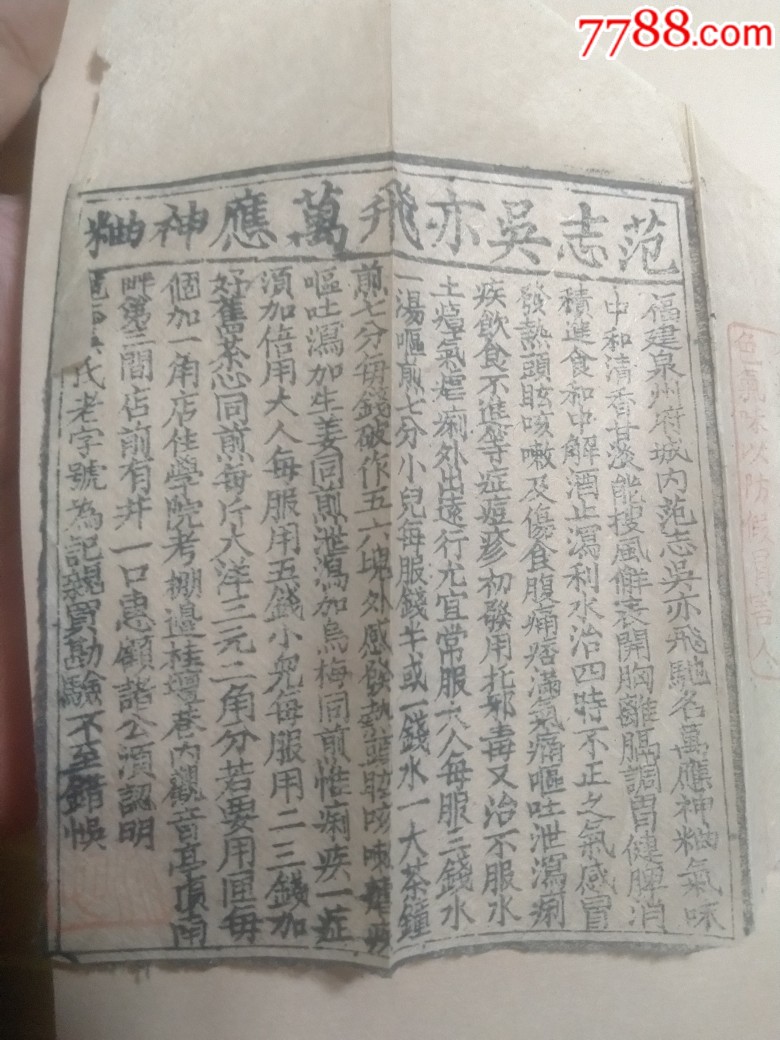 7788.com
范志吳亦飛萬應神粬
福建泉州府城内范志吳亦飛馳名萬應神粬氣味
中和清香甘淡能搜風解表開胸離膈調胃健脾消
積進食和中解酒止瀉利水治四時不正之氣感冒
發熱頭眩咳嗽及傷食腹痛痞滿氣痛嘔吐泄瀉痢
疾飲食不進等症痘疹初發用托邪毒又治不服水
土瘴氣瘧痢外出遠行尤宜常服大人每服三錢水
一湯嘔煎七分小兒每服錢半或一錢水一大茶鐘
煎七分每錢破作五六塊外感發熱頭眩咳嗽瘧疾
嘔吐瀉加生姜同煎泄瀉加烏梅同煎惟痢疾一症
須加倍用大人每服用五錢小兒每服用二三錢加
好舊茶心同煎每斤大洋三元二角分若要用匣每
個加一角店住學院考棚邊桂壇巷内觀音亭頂南
畔第三間店前有井一口惠顧諸公須認明
氏老字號為記親買勘驗不至錯悞
氣味以防假
人